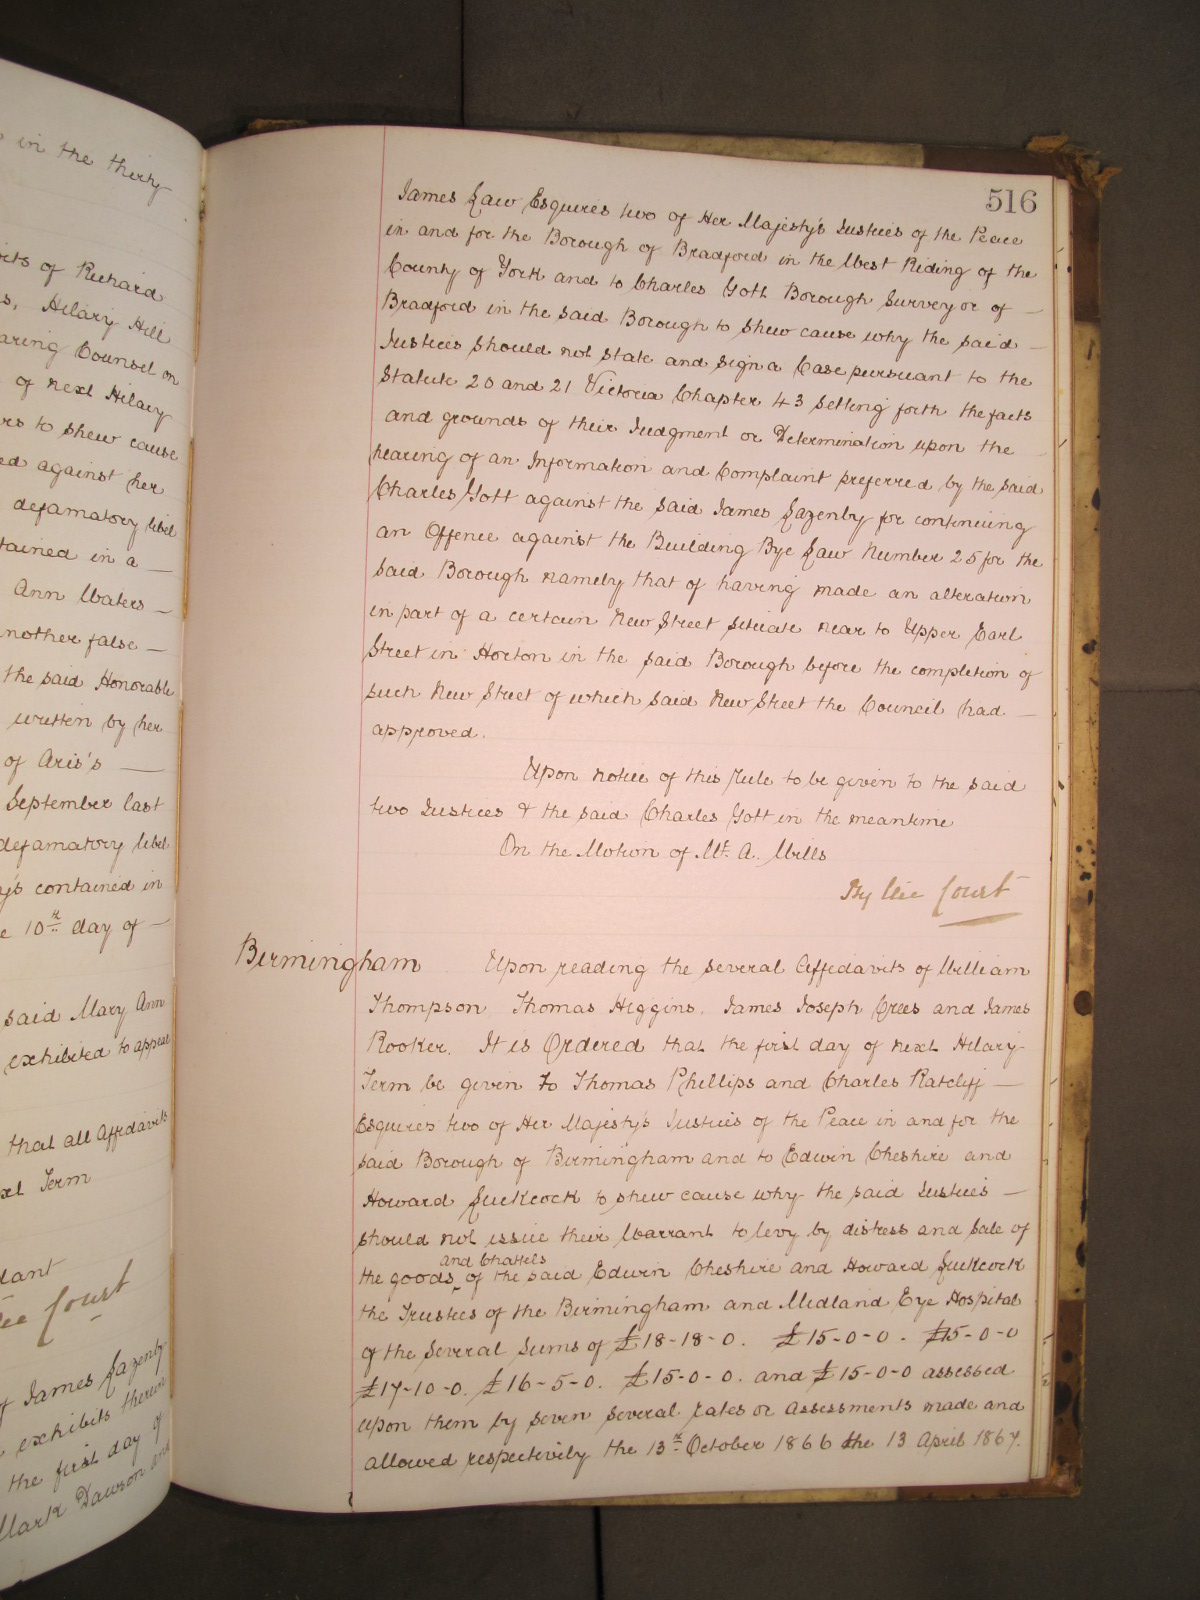 in the thirty
of Richard
Hilary Hill
Counsel on
of next Hilary
to shew cause
against her
defamatory libel
in a
Ann Waters
false
the said Honorable
written by her
of Aris's
September last
defamatory libel
contained in
10th day of
said Mary Ann
exhibited to appear
that all Affidavits
Term
Court
James Lazenby
exhibits therein
the first day of
Mark Dawson and
516
James Law Esquires two of Her Majesty's Justices of the Peace
in and for the Borough of Bradford in the West Riding of the
County of York and to Charles Gott Borough Surveyor of
Bradford in the said Borough to shew cause why the said
Justices should not state and sign a Case pursuant to the
Statute 20 and 21 Victoria Chapter 43 setting forth the facts
and grounds of their Judgment or Determination upon the
hearing of an Information and Complaint preferred by the said
Charles Gott against the said James Lazenby for continuing
an Offence against the Building Bye Law Number 25 for the
said Borough namely that of having made an alteration
in part of a certain New Street situate near to Upper Earl
Street in Horton in the said Borough before the completion of
such New Street of which said New Street the Council had
approved.
Upon notice of this Rule to be given to the said
two Justices & the said Charles Gott in the meantime
On the Motion of Mr. A. Wills
By the Court
Birmingham Upon reading the several Affidavits of William
Thompson, Thomas Higgins, James Joseph Crees and James
Rooker. It is Ordered that the first day of next Hilary
Term be given to Thomas Phillips and Charles Ratcliff
Esquires two of Her Majesty's Justices of the Peace in and for the
said Borough of Birmingham and to Edwin Cheshire and
Howard Luckcock to shew cause why the said Justices
should not issue their Warrant to levy by distress and sale of
and Chattels
the goods of the said Edwin Cheshire and Howard Luckcock
the Trustees of the Birmingham and Midland Eye Hospital
of the several sums of £18-18-0. £15-0-0. £15-0-0
£17-10-0. £16-5-0. £15-0-0. and £15-0-0 assessed
upon them by seven several rates or assessments made and
allowed respectively the 13th October 1866 the 13 April 1867.